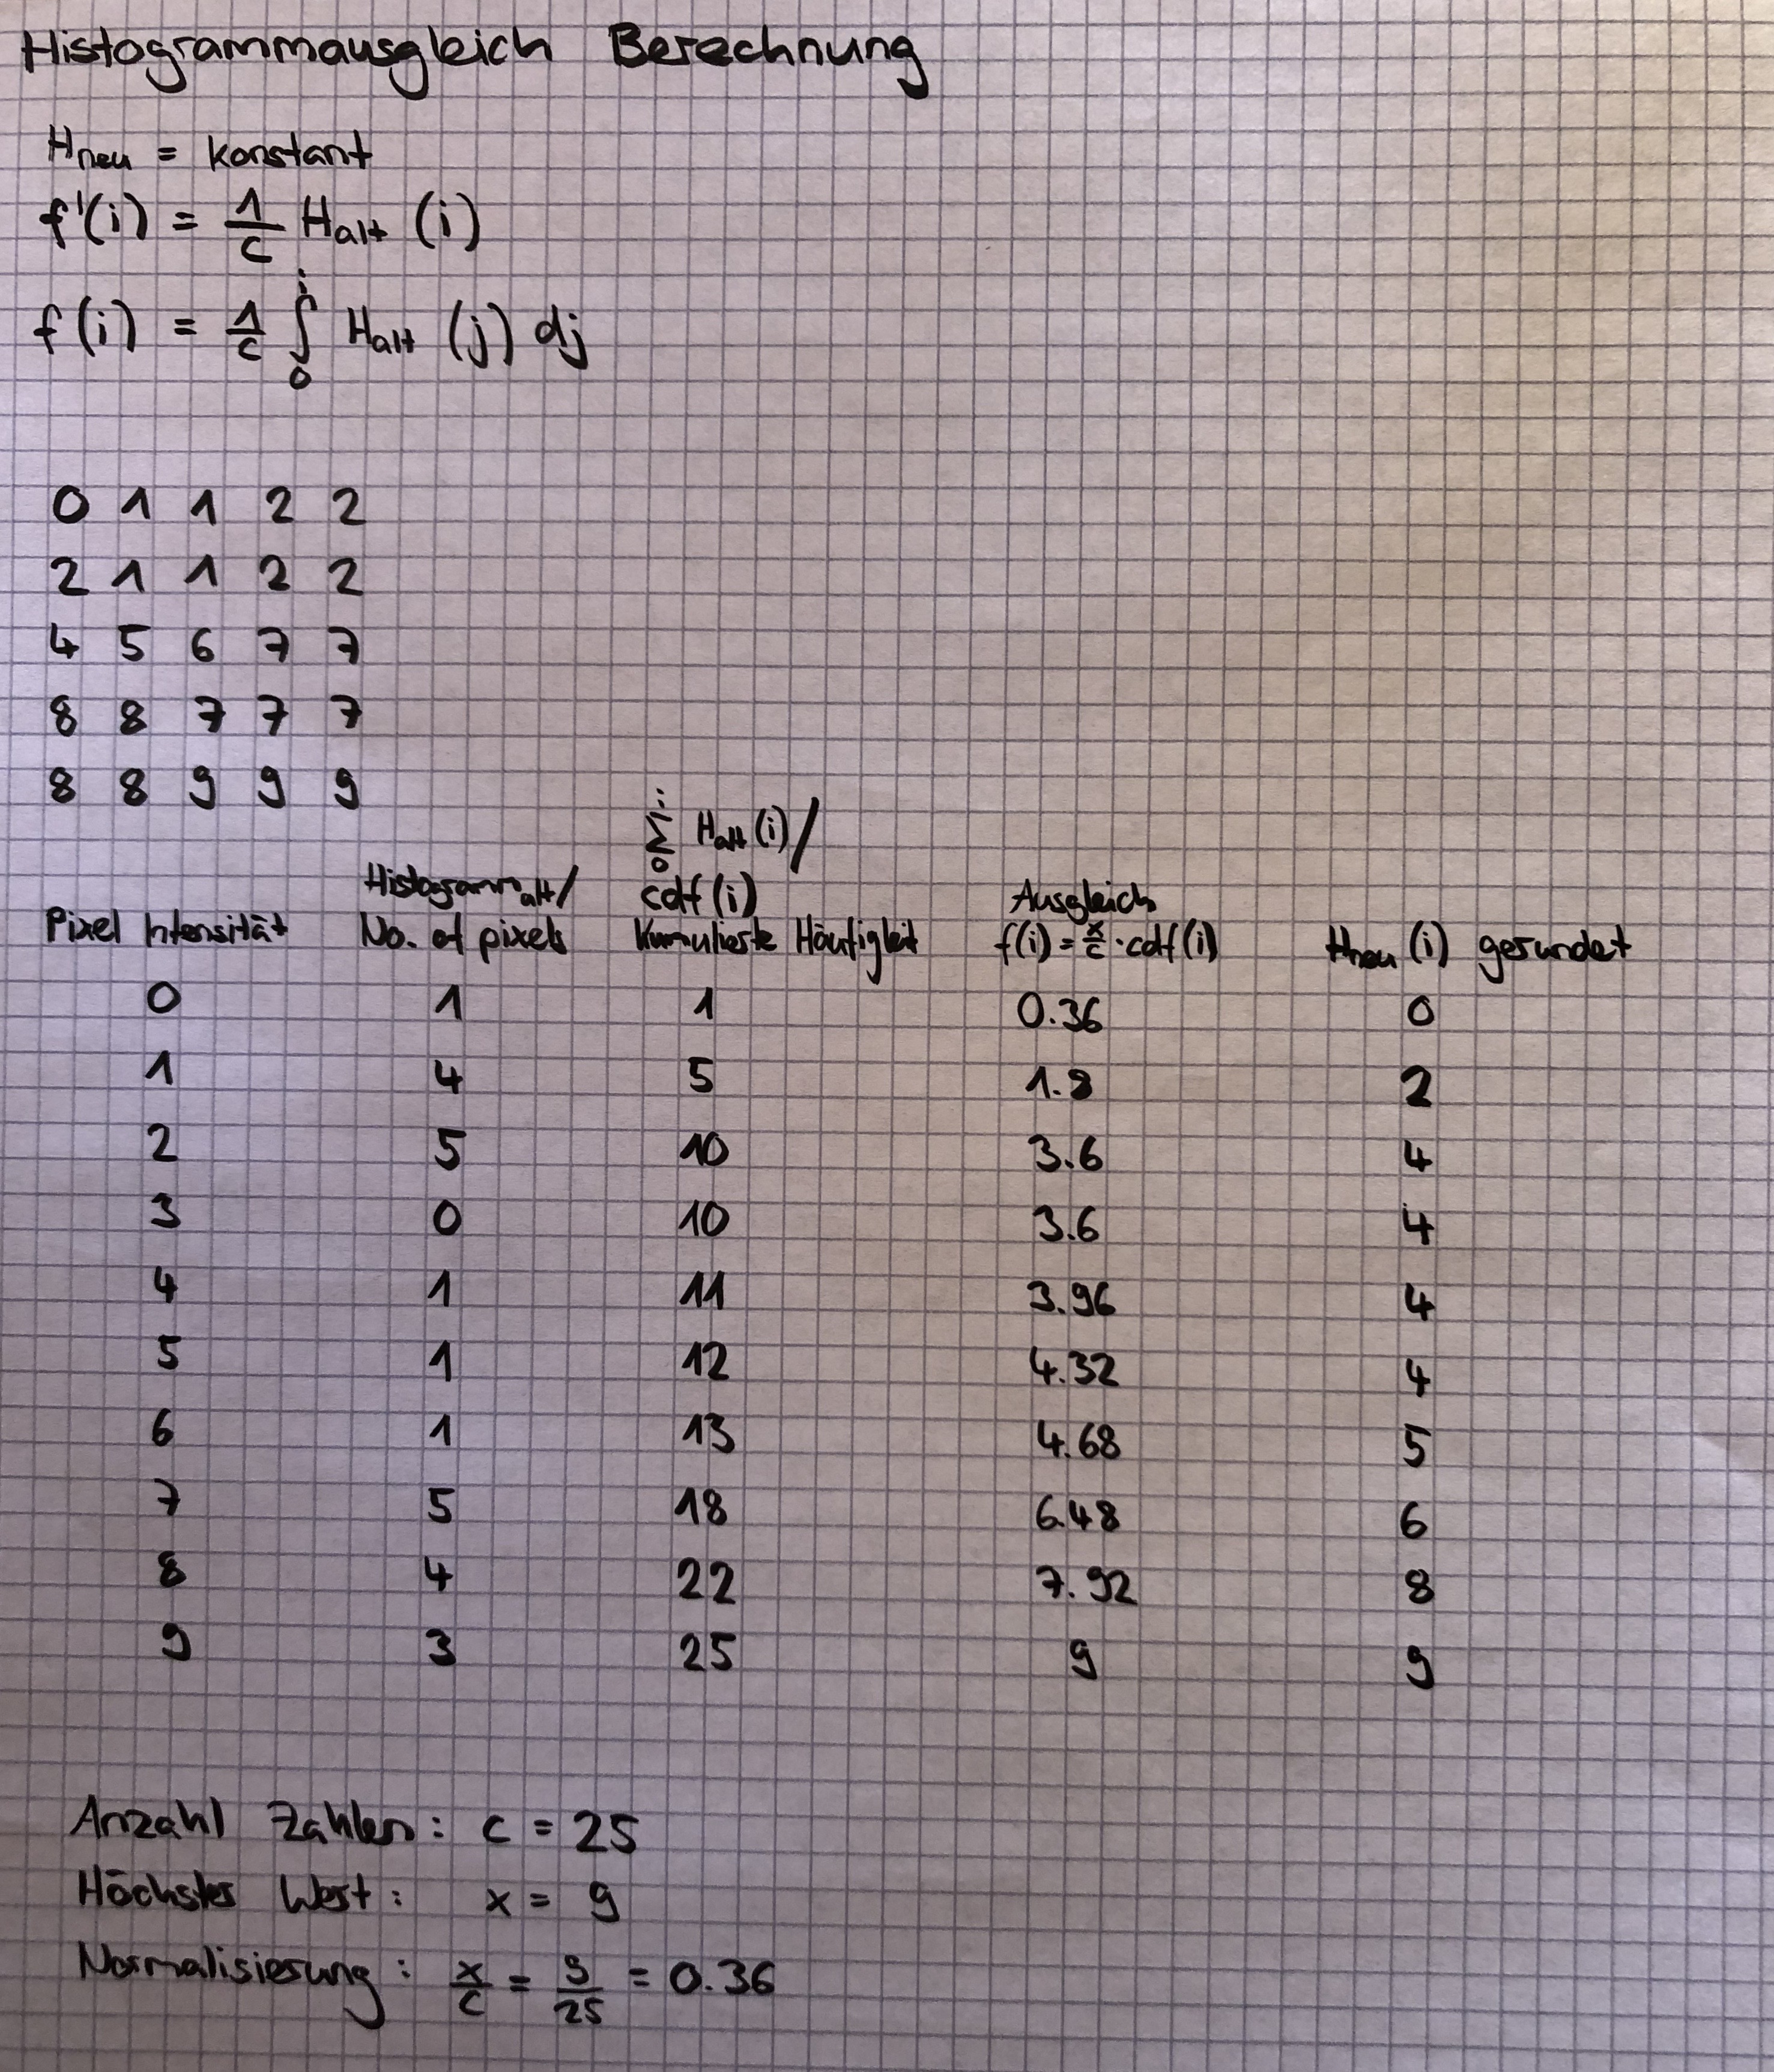 Histogrammausgleich Berechnung
Hneu = konstant
f'(i) = 1/c Halt (i)
f(i) = 1/c ∫₀ⁱ Halt (j) dj
0 1 1 2 2
2 1 1 2 2
4 5 6 7 7
8 8 7 7 7
8 8 9 9 9
Pixel Intensität Histogrammalt/ No. of pixels Σ₀ⁱ Halt (i)/ cdf(i) Kumulierte Häufigkeit Ausgleich f(i) = x/c · cdf(i) Hneu (i) gerundet
0 1 1 0.36 0
1 4 5 1.8 2
2 5 10 3.6 4
3 0 10 3.6 4
4 1 11 3.96 4
5 1 12 4.32 4
6 1 13 4.68 5
7 5 18 6.48 6
8 4 22 7.92 8
9 3 25 9 9
Anzahl Zahlen: c = 25
Höchster Wert: x = 9
Normalisierung: x/c = 9/25 = 0.36